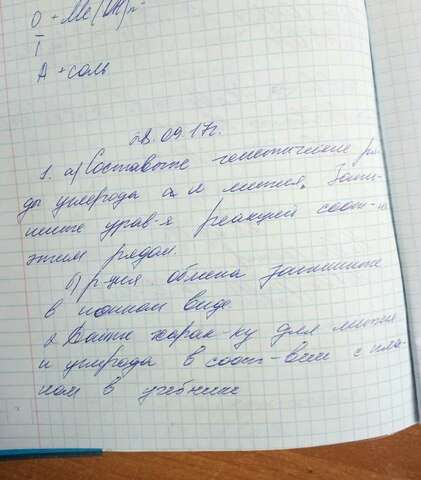 O + Me(OH)n
T
A + соль
28.09.17г.
1. а) Составьте генетические ря-
ды углерода и лития. Запи-
шите урав-я реакций соот-но
этим рядам.
б) р-ция обмена запишите
в ионном виде.
2. Дайте харак-ку для лития
и углерода в соот-вии с пла-
ном в учебнике